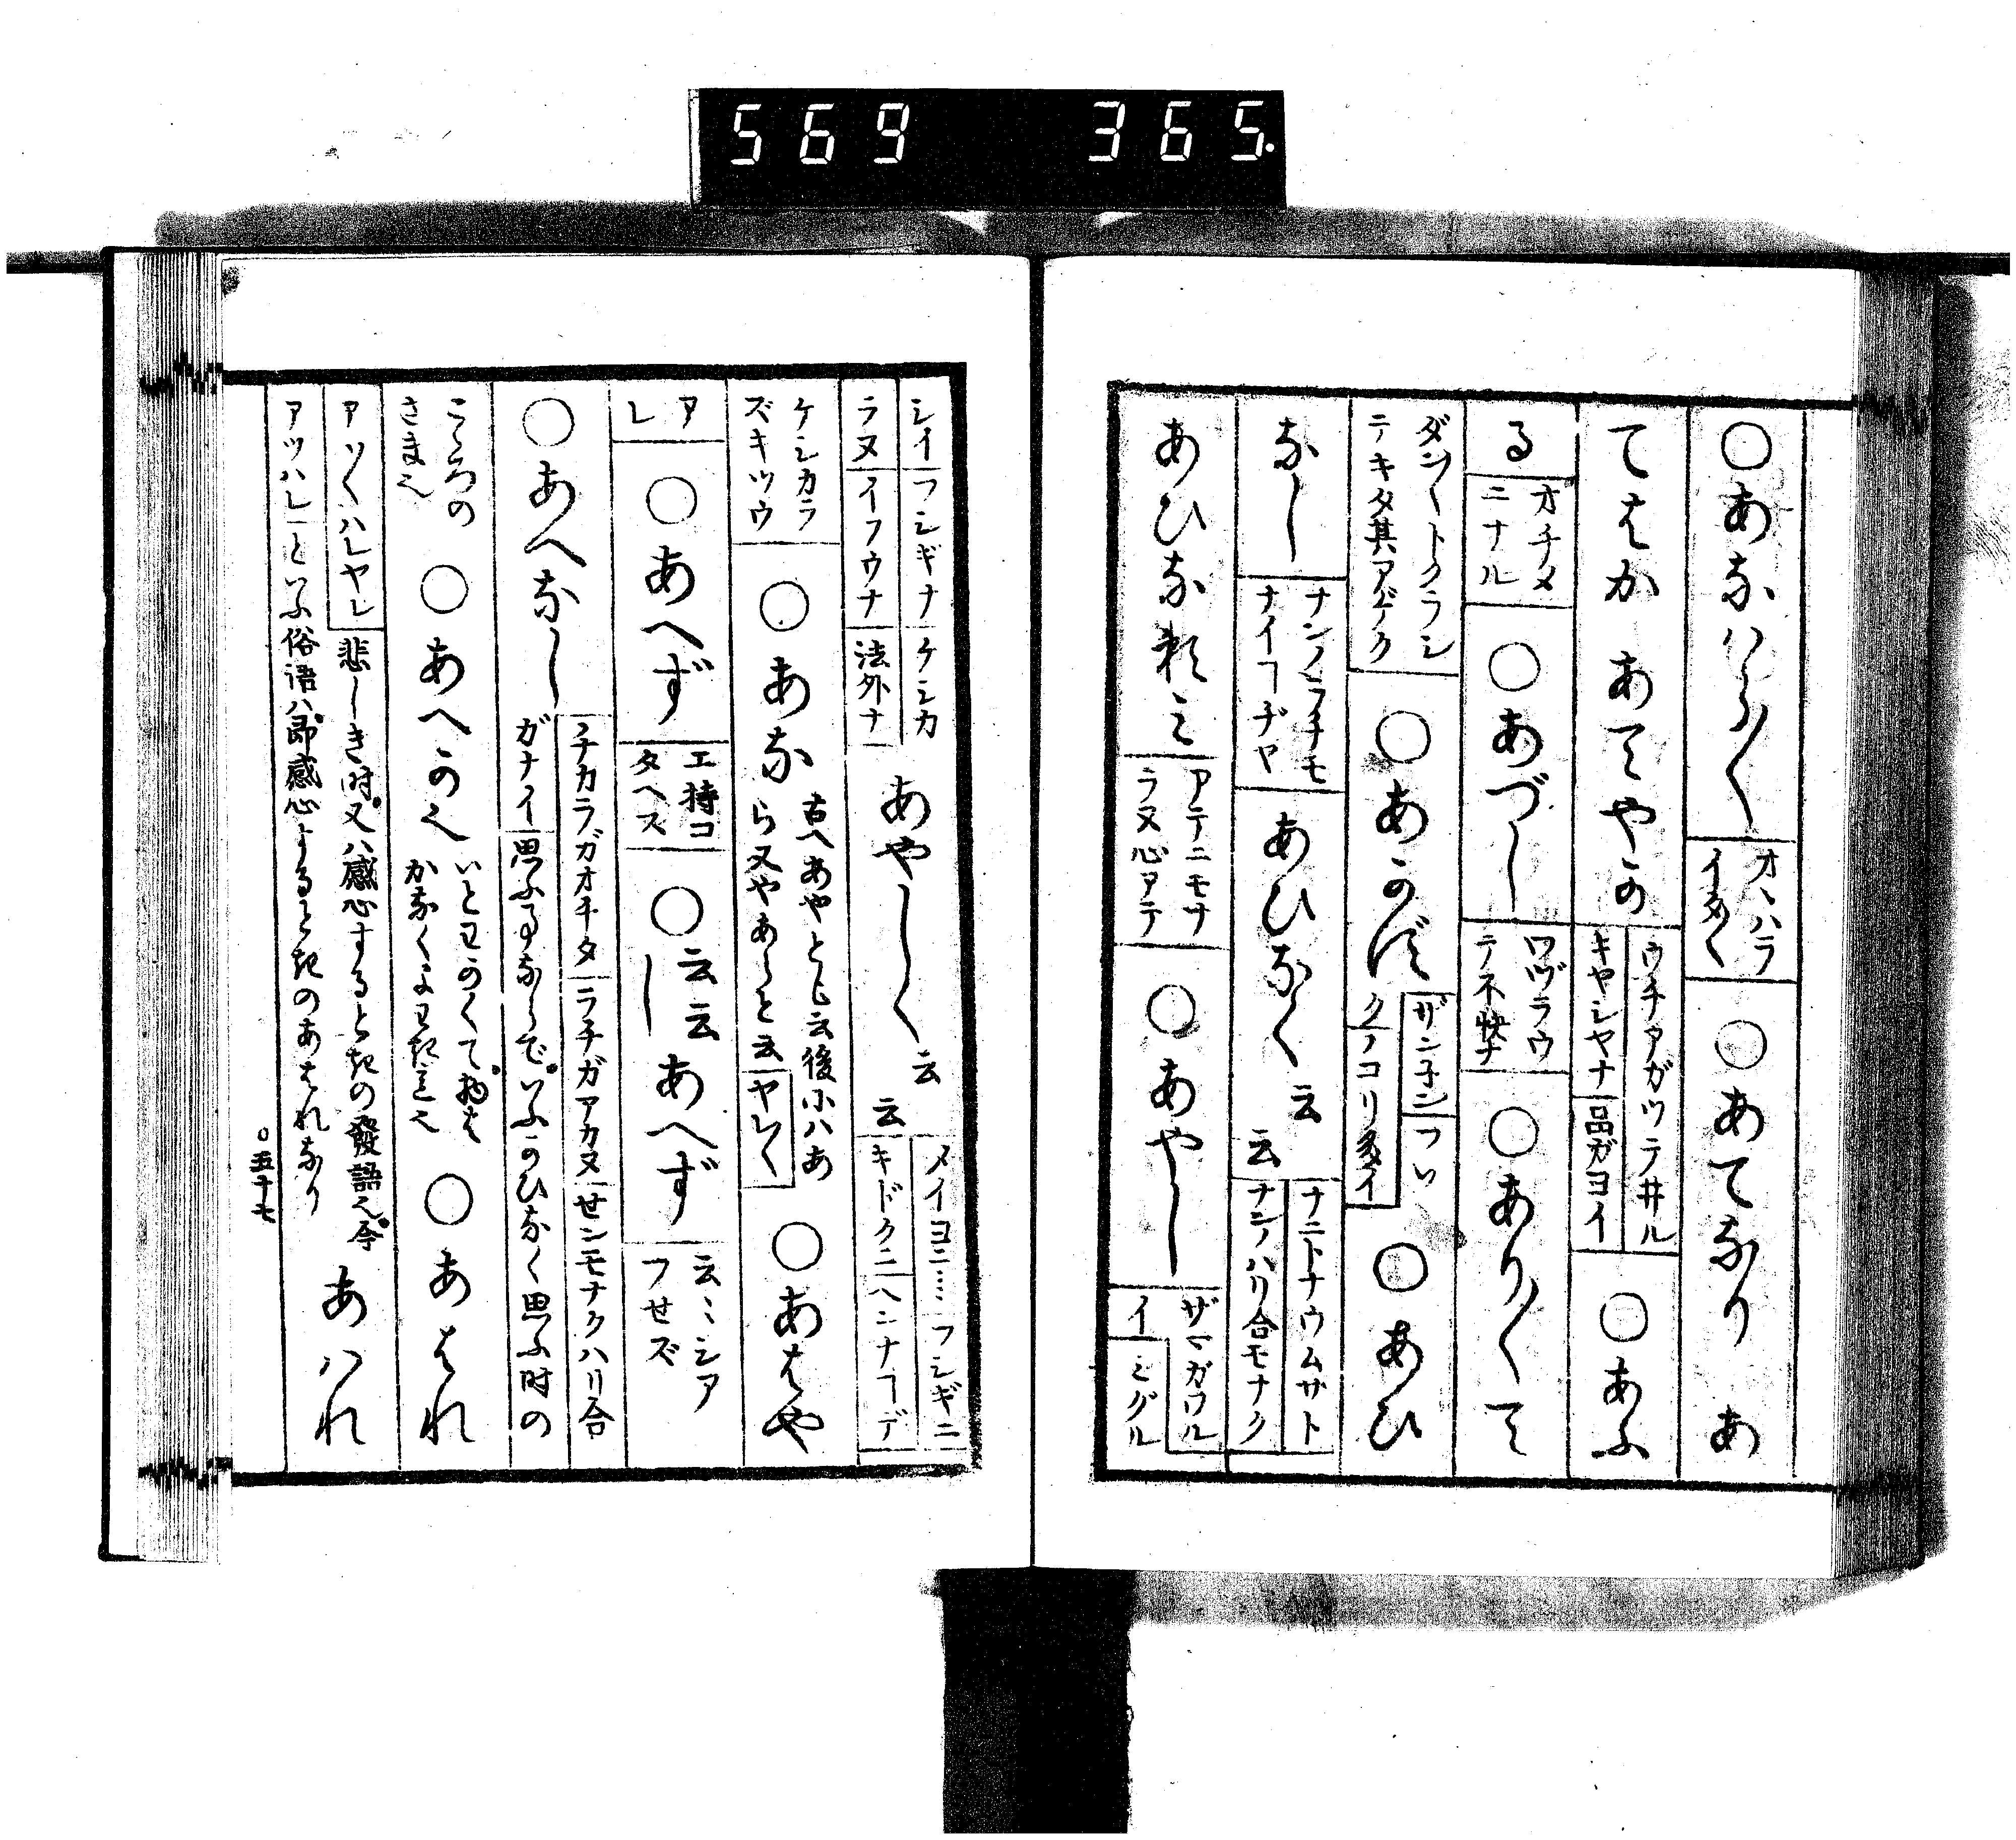 569 365.
○あなはら〳〵
オヽハラ
イタ〳〵
○あてなり あ
てはか あてやか
ウチアガツテ井ル
キヤシヤナ│品ガヨイ
○あふ
る
オチメ
ニナル
○あづし
ワヅラウ
テ不快ナ
○あり〳〵て
ダン〳〵トクラシ
テキタ其アゲク
○あかず
ザンネン
ノコリ多イ
○あひ
なし
ナンノラチモ
ナイヿヂヤ
あひなく 云云
ナニトナウムサト
ナンノハリ合モナク
あひな頼み
アテニモナ
ラヌ心アテ
○あやし
ザマガワル
イ│ミグル
シイ│フシギナ│ケシカ
ラヌ│イフウナ│法外ナ
あやしく 云云
メイヨニ…フシギニ
キドクニ│ヘンナヿデ
ケシカラ
ズキツウ
○あな
古へあやとも云後にハあ
ら又やあらと云
ヤレ〳〵
○あはや
ア
レ
○あへず
エ持コ
タヘズ
○云云しあへず
云ヽシア
フセズ
○あへなし
チカラガオチタ│ラチガアカヌ│センモナクハリ合
ガナイ│思ふ事ならで。いふかひなく思ふ時の
こゝろの
さま也
○あへか也
いとわかくて。物は
かなくよわきこと也
○あはれ
アツ〳〵ハレヤレ
悲しき時。又ハ感心するときの發語也。今
アツハレ│といふ俗語ハ。即感心するときのあはれなり
あハれ
○五十七